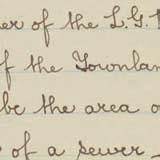 er of the L.G.
f the Townlan
be the area o
of a sewer